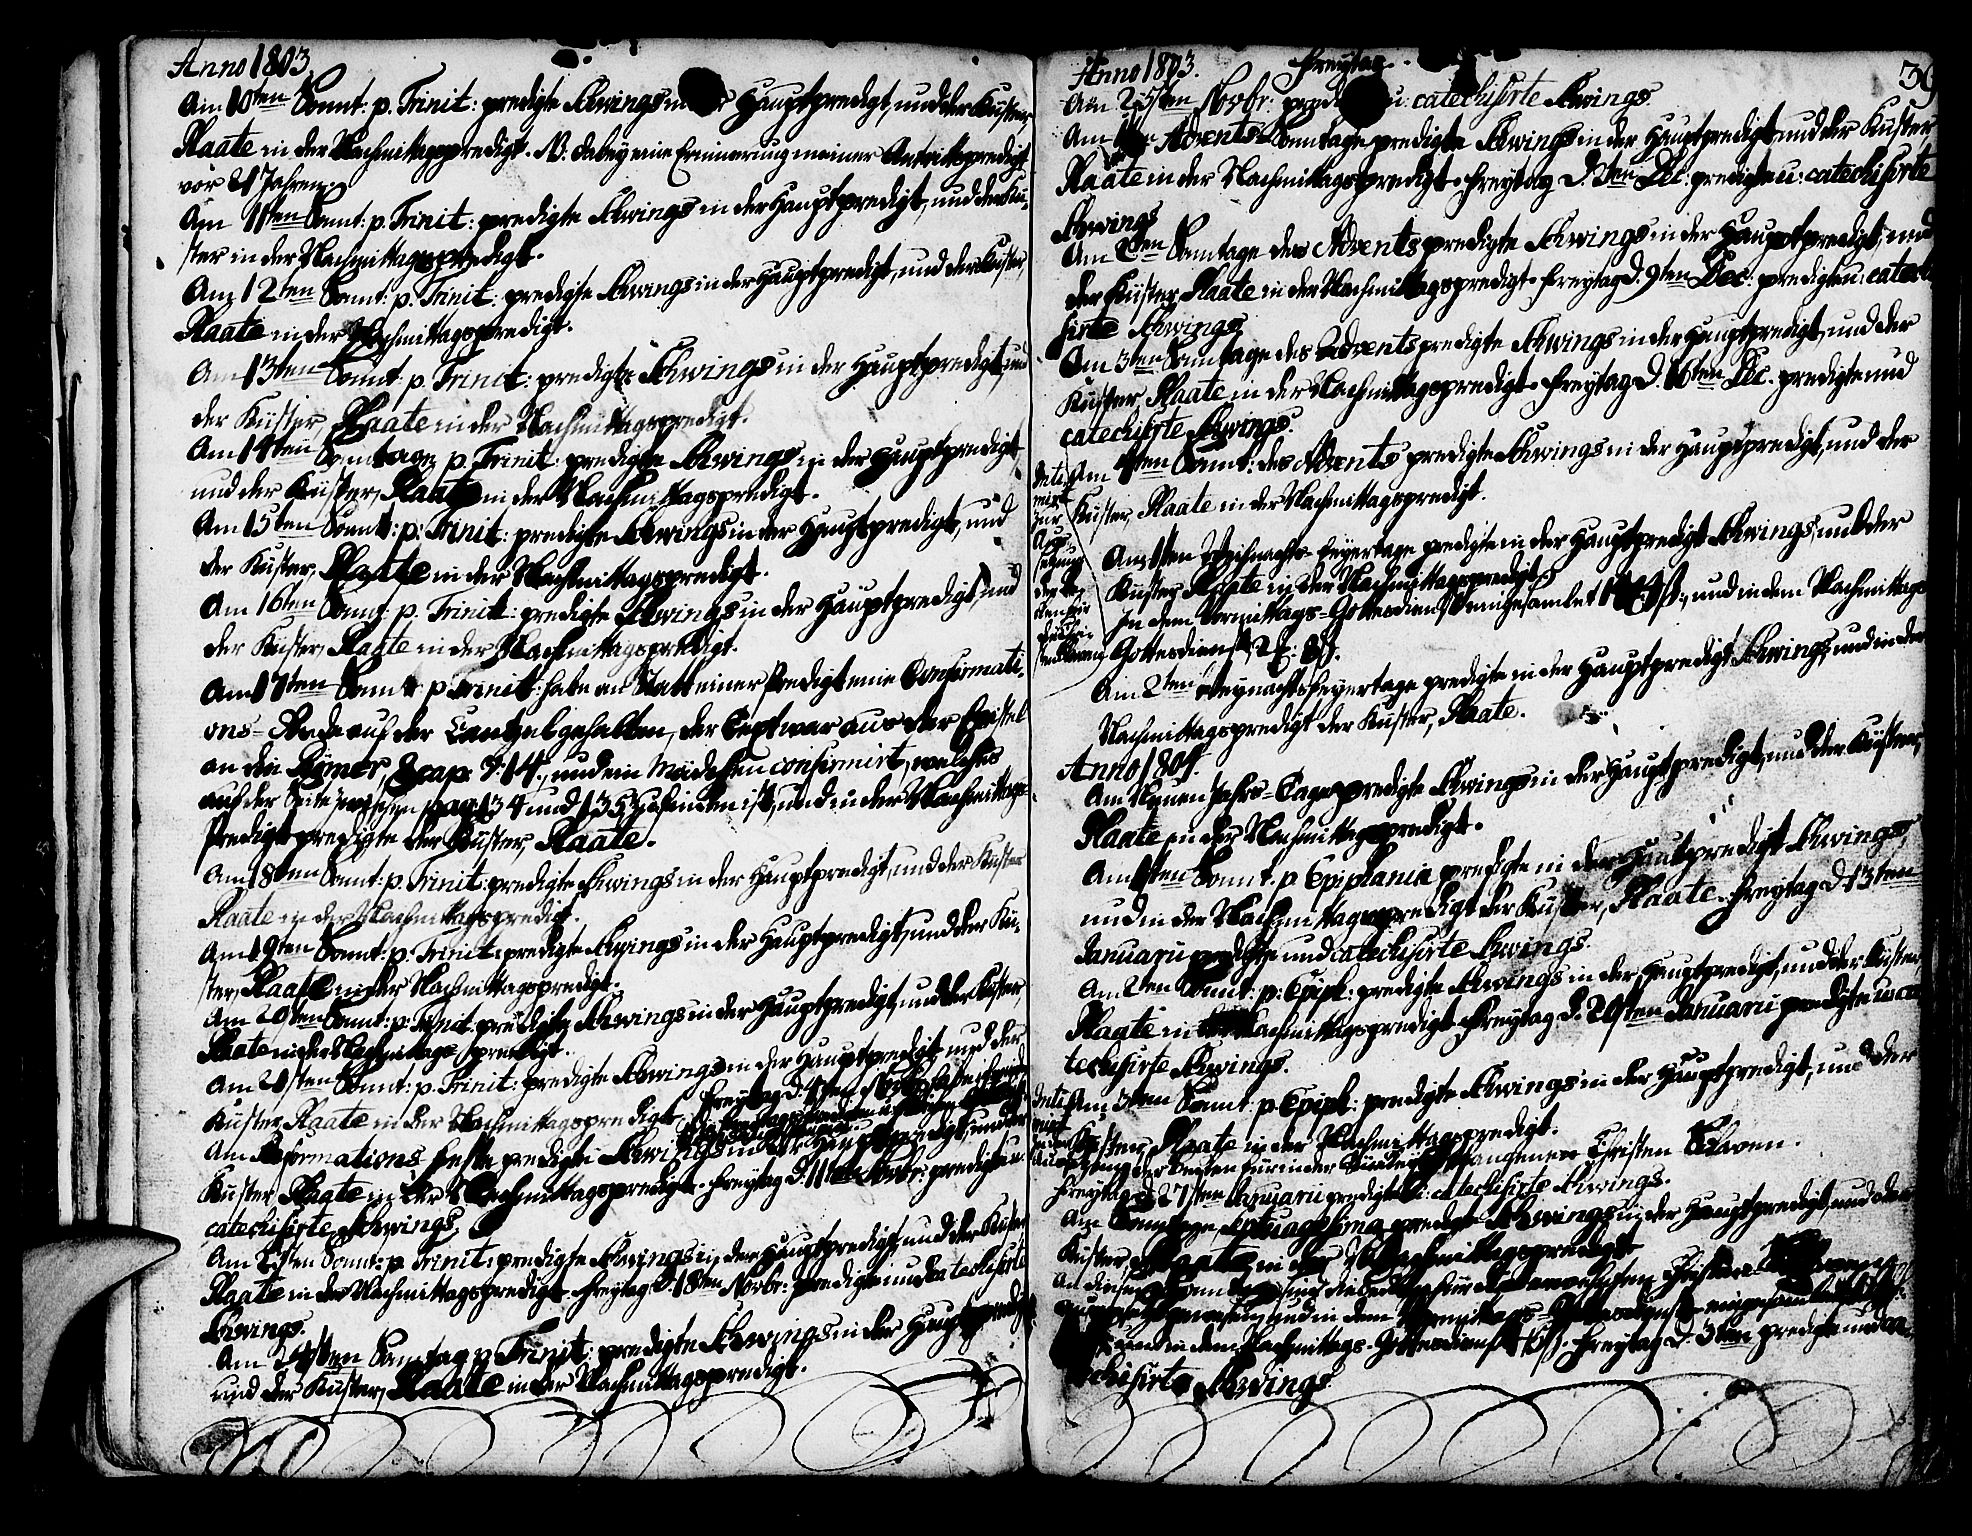 Anno 1803.
Am 10ten Sonnt: p. Trinit: predigte Schwings in der Hauptpredigt, und der Küster,
Plaate in der Nachmittagspredigt. NB. dabey eine Erinnerung meiner Antrittspredigt
vor 21 Jahren.
Am 11ten Sonnt: p. Trinit: predigte Schwings in der Hauptpredigt, und der Kü-
ster in der Nachmittagspredigt.
Am 12ten Sonnt: p. Trinit: predigte Schwings in der Hauptpredigt, und der Küster,
Plaate in der Nachmittagspredigt.
Am 13ten Sonnt: p. Trinit: predigte Schwings in der Hauptpredigt, und
der Küster, Plaate in der Nachmittagspredigt.
Am 14ten Sonntage p. Trinit: predigte Schwings in der Hauptpredigt
und der Küster, Plaate in der Nachmittagspredigt.
Am 15ten Sonnt: p. Trinit: predigte Schwings in der Hauptpredigt, und
der Küster, Plaate in der Nachmittagspredigt.
Am 16ten Sonnt: p. Trinit: predigte Schwings in der Hauptpredigt, und
der Küster, Plaate in der Nachmittagspredigt.
Am 17ten Sonnt: p. Trinit: habe an Statt einer Predigt eine Confirmati-
ons-Rede auf der Cantzel gehalten, der Text war aus der Epistel
an die Römer, 8 cap. 14., und ein Mädchen confirmirt, welches
auf der Seite zwischen pag: 134 und 135 zu finden ist, und in der Nachmittags-
Predigt predigte der Küster, Plaate.
Am 18ten Sonnt: p. Trinit: predigte Schwings in der Hauptpredigt, und der Küster
Plaate in der Nachmittagspredigt.
Am 19ten Sonnt: p. Trinit: predigte Schwings in der Hauptpredigt, und der Kü-
ster, Plaate in der Nachmittagspredigt.
Am 20sten Sonnt: p. Trinit. predigte Schwings in der Hauptpredigt, und der Küster,
Plaate in der Nachmittagspredigt.
Am 21sten Sonnt: p. Trinit: predigte Schwings in der Hauptpredigt und der
Küster, Plaate in der Nachmittagspredigt. Freytag d. 4ten Novbr:
Am Reformations-Feste predigte Schwings in der Hauptpredigt, und der
Küster, Plaate in der Nachmittagspredigt. Freytag d. 11ten Novbr: predigte u:
catechisirte Schwings.
Am Sonnt: p. Trinit: predigte Schwings in der Hauptpredigt, und der Küster
Plaate in der Nachmittagspredigt. Freytag d. 18ten Novbr: predigte und catechisirte
Schwings.
Am Sonntag p. Trinit: predigte Schwings in der Hauptpredigt
und der Küster, Plaate in der Nachmittagspredigt.
Anno 1803. Freytag
Am 25sten Novbr: predigte u: catechisirte Schwings.
Am 1ten Advents-Sonntage predigte Schwings in der Hauptpredigt und der Küster
Plaate in der Nachmittagspredigt. Freytag d. 2ten Dec: predigte u: catechisirte
Schwings
Am 2ten Sonntage des Advents predigte Schwings in der Hauptpredigt, und
der Küster, Plaate in der Nachmittagspredigt. Freytag d. 9ten Dec: predigte u: catechi
sirte Schwings
Am 3ten Sonntage des Advents predigte Schwings in der Hauptpredigt, und der
Küster, Plaate in der Nachmittagspredigt. Freytag d. 16ten Dec. predigte und
catechisirte Schwings.
Am 4ten Sonnt: des Advents predigte Schwings in der Hauptpredigt, und der
Küster, Plaate in der Nachmittagspredigt.
Am 1sten Weihnachts-Feyertage predigte in der Hauptpredigt Schwings, und der
Küster Plaate in der Nachmittagspredigt.
In dem Vormittags-Gottesdienst eingesamlet und in dem Nachmittags
Gottesdienst
Am 2ten Weynachtsfeyertage predigte in der Hauptpredigt Schwings, und in der
Nachmittagspredigt der Küster, Plaate.
Anno 1804.
Am Neuen Jahrs-Tage predigte Schwings in der Hauptpredigt, und der Küster,
Plaate, in der Nachmittagspredigt.
Am 1sten Sonnt. p. Epiphania predigte in der Hauptpredigt Schwings,
und in der Nachmittagspredigt der Küster, Plaate. Freytag d. 13ten
Januarii predigte und catechisirte Schwings.
Am 2ten Sonnt: p: Epiph: predigte Schwings in der Hauptpredigt, und der Küster
Plaate in der Nachmittagspredigt. Freytag d. 20sten Januarii predigte u: ca
techisirte Schwings.
Am 3ten Sonnt: p. Epiph: predigte Schwings in der Hauptpredigt, und der
Küster, Plaate in der Nachmittagspredigt.
der in der Türckey gefangenen Christen Sclaven.
Freytag d. 27sten Januarii predigte u: catechisirte Schwings.
Am Sonntage Septuagesima predigte Schwings in der Hauptpredigt, und der
Küster, Plaate in der Nachmittagspredigt
An diesem Sonntage sind Christen
und in dem Vormittags-Gottesdienst eingesamlet
und in dem Nachmittags-Gottesdienst Freytag d. 3ten predigte und ca-
techisirte Schwings